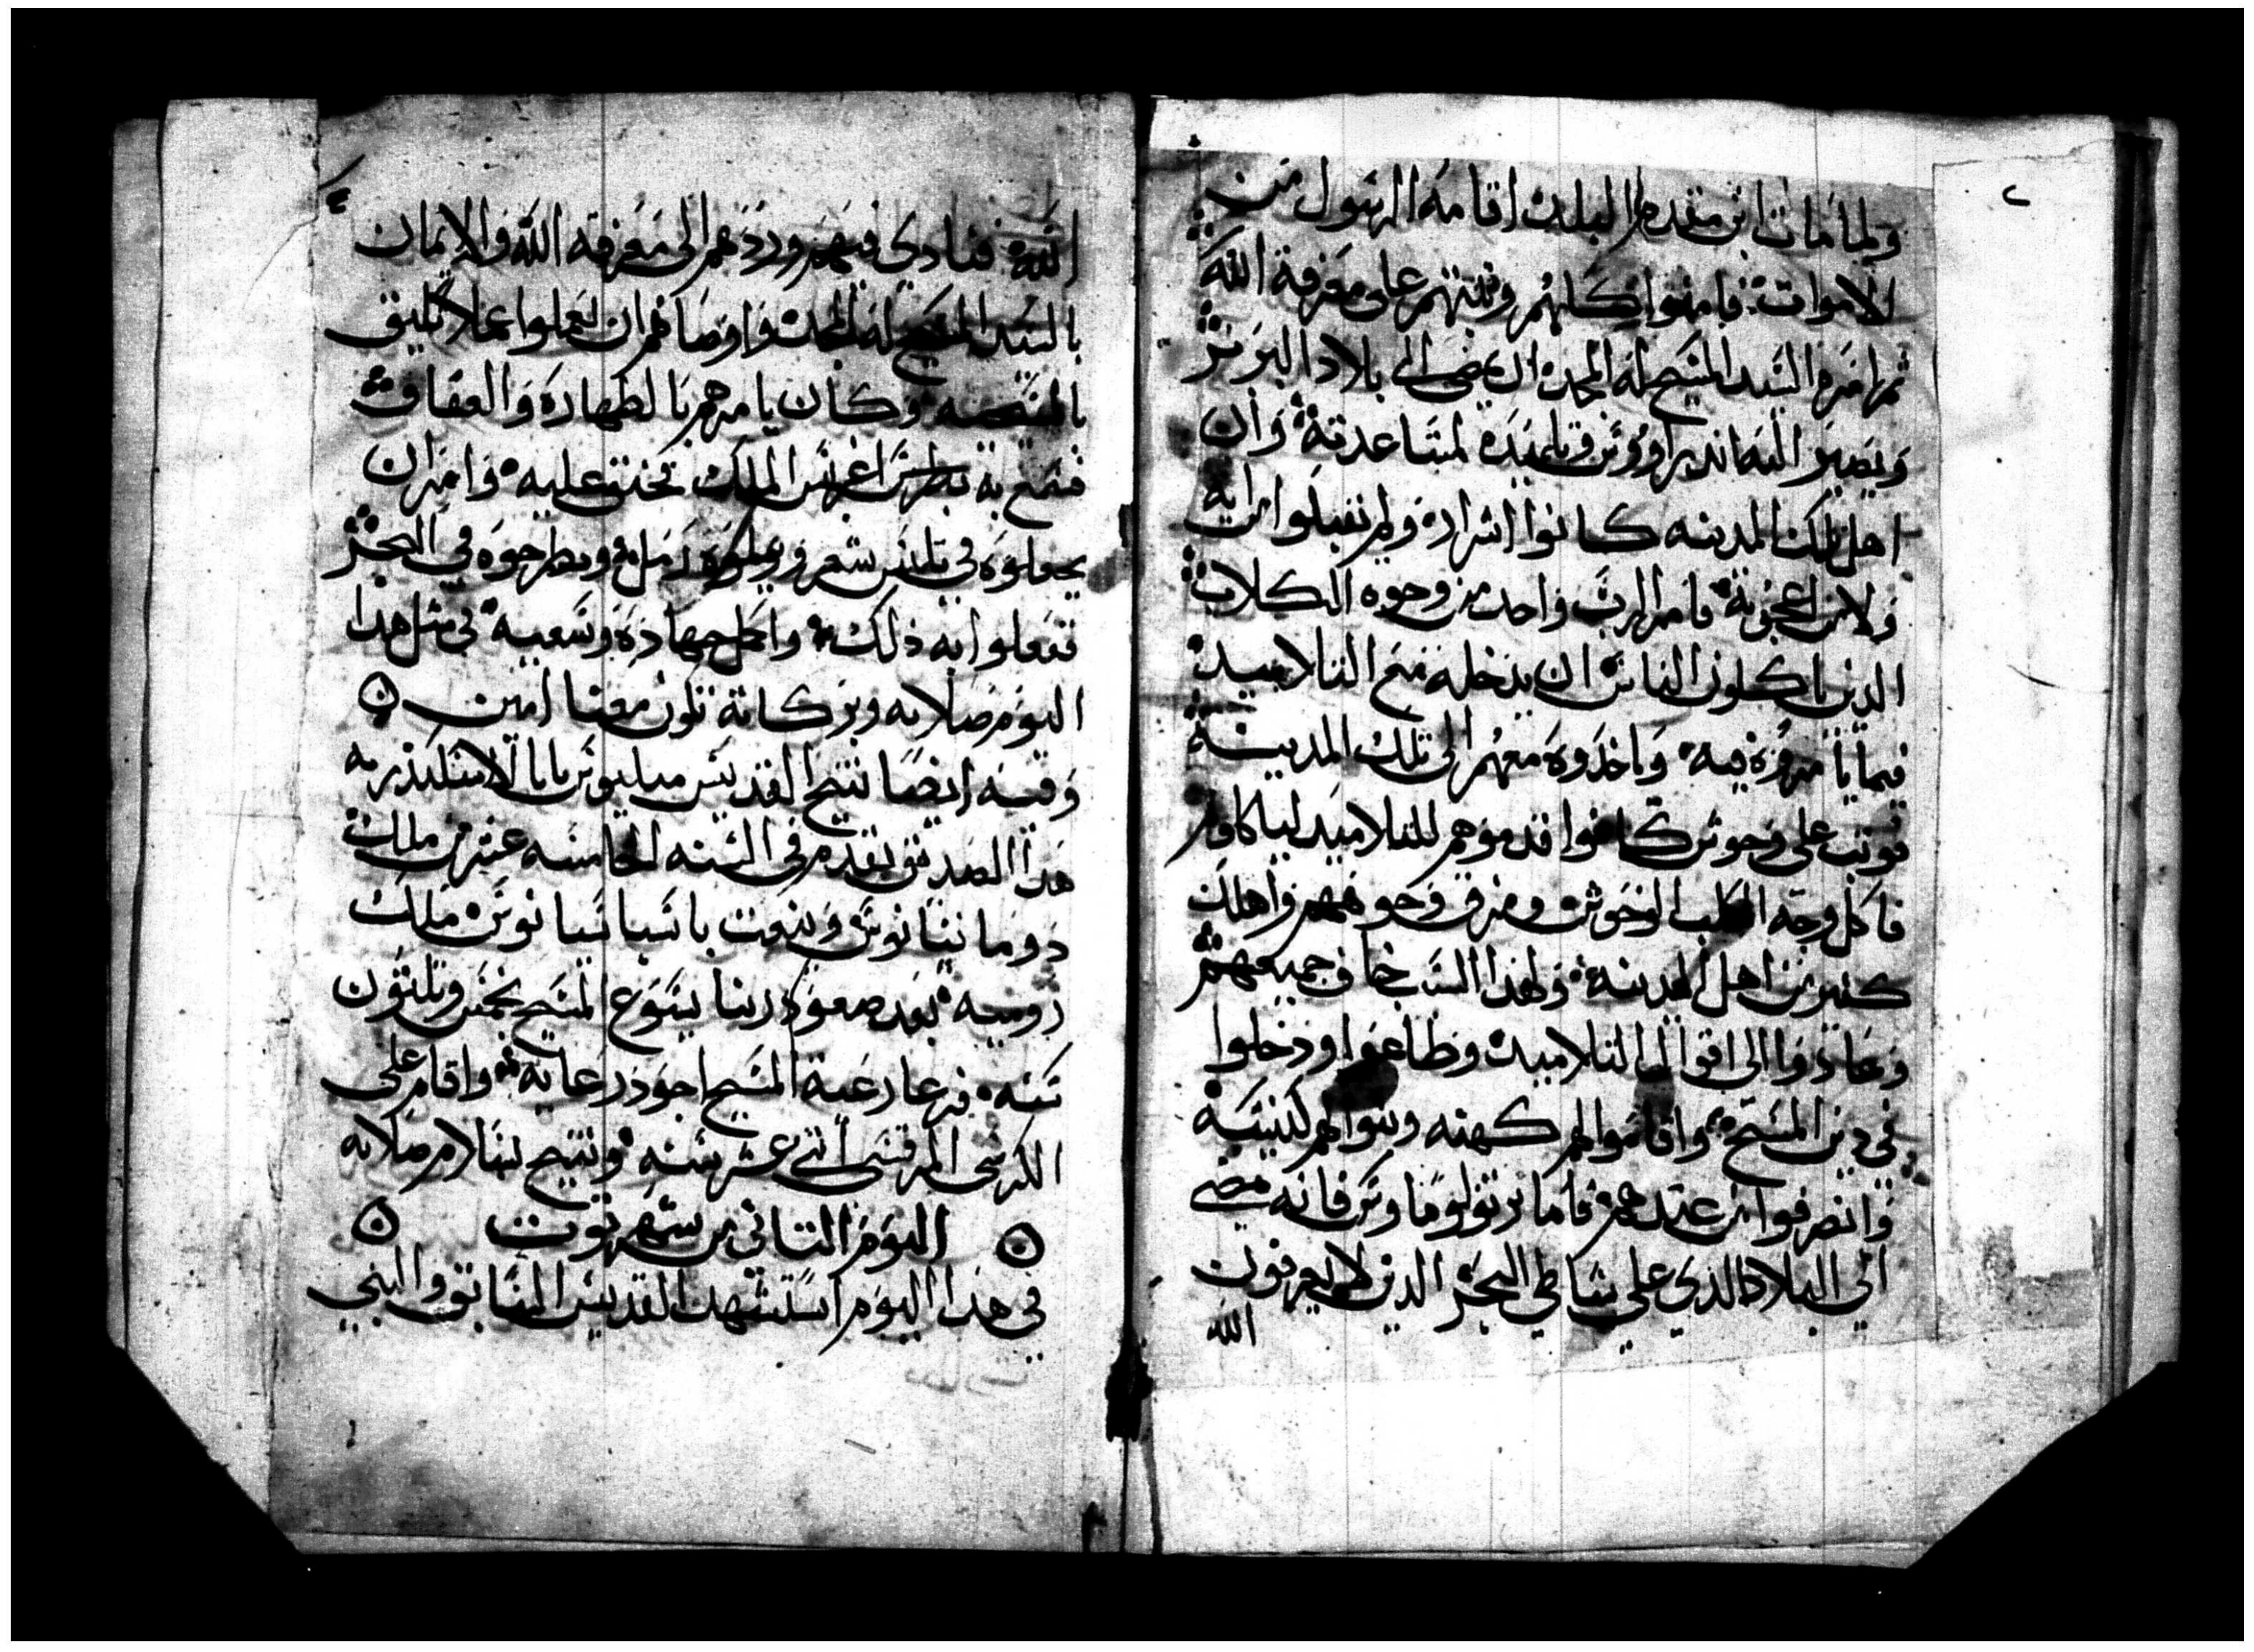 ولما مات ابن مقدم البلد اقامه الرسول من
الاموات فامنوا كلهم وثبتهم على معرفة الله
ثم امره السيد المسيح له المجد ان يمضي الى بلاد البربر
وتصير اليه اندراووس وتلميذه لمساعدته وان
اهل تلك المدينه كانوا اشرار ولم يقبلوا من ايه
ولا من اعجوبة فامر الرب واحد من وجوه الكلاب
الدين ياكلون الناس ان يدخل مع التلاميد
فيما يامروه فيه واخدوه معهم الى تلك المدينة
فوتب على وحوش كانوا قدموهم للتلاميد لياكلوهم
فاكل وجه الكلب الوحوش ومزق وجوههم واهلك
كتير من اهل المدينه ولهدا السب خاف جميعهم
وعادوا الى اقوال التلاميد وطاعوا ودخلوا
في دين المسيح واقاموا لهم كهنه وبنوا لهم كنيسة
وانصرفوا من عندهم فاما برتولوماوس فانه مضى
الي البلاد الذي على شاطي البحر الدين لا يعرفون
الله
٢
الله فنادى فيهم وردهم الى معرفه الله والايمان
بالسيد المسيح له المجد واوصاهم ان يعملوا عملا يليق
بالمسيحيه وكان يامرهم بالطهارة والعفاف
فسمع به اغربس الملك فحنق عليه وامر ان
يجعلوه في تليس شعر ويملوه رمل ويطرحوه في البحر
ففعلوا به ذلك واكمل جهاده وسعيه في مثل هدا
اليوم صلاته وبركاته تكون معنا امين
وفيه ايضا تنيح القديس ميليوس بابا الاسكندريه
هدا الصديق تقدم في السنه الخامسه عشر من ملك
دوماتيانوس ويدعى باسباسيانوس ملك
روميه بعد صعود ربنا يسوع المسيح بخمس وتلتون
سنه فرعا رعية المسيح اجود رعايه واقام على
الكرسي المرقسي اتني عشر سنه وتنيح بسلام صلاته
اليوم التاني من شهر توت
في هدا اليوم استشهد القديس السابق والنبي